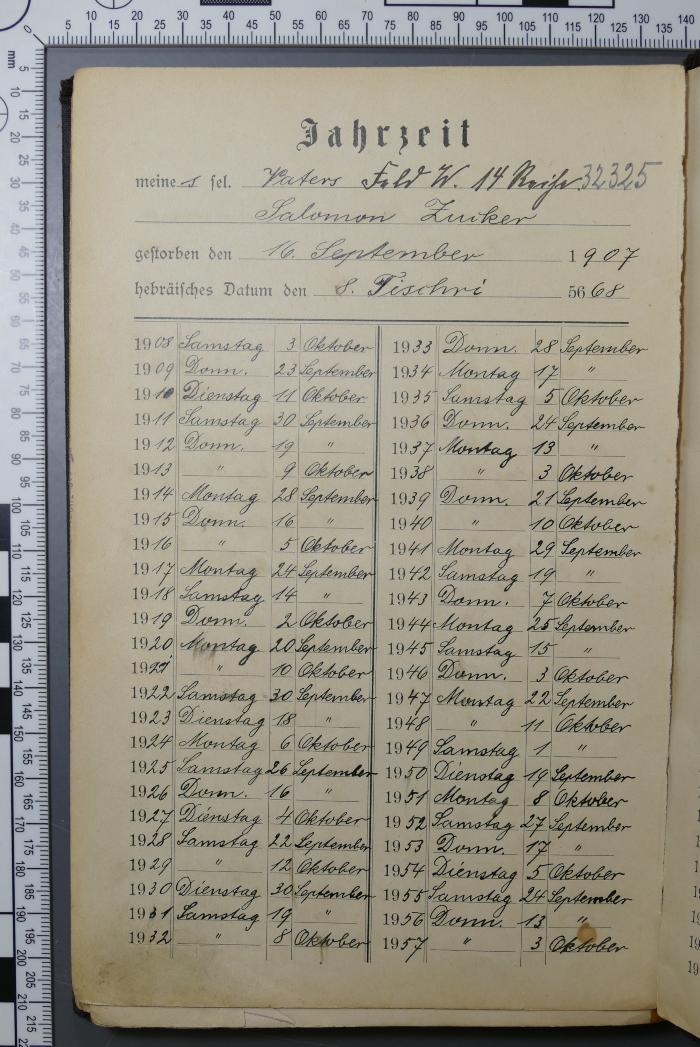 Jahrzeit
meines sel. Vaters Feld W. 14 Reihe 32325
Salomon Zucker
gestorben den 16. September 1907
hebräisches Datum den 8. Tischri 5668
1908 Samstag 3 Oktober
1909 Donn. 23 September
1910 Dienstag 11 Oktober
1911 Samstag 30 September
1912 Donn. 19 "
1913 " 9 Oktober
1914 Montag 28 September
1915 Donn. 16 "
1916 " 5 Oktober
1917 Montag 24 September
1918 Samstag 14 "
1919 Donn. 2 Oktober
1920 Montag 20 September
1921 " 10 Oktober
1922 Samstag 30 September
1923 Dienstag 18 "
1924 Montag 6 Oktober
1925 Samstag 26 September
1926 Donn. 16 "
1927 Dienstag 4 Oktober
1928 Samstag 22 September
1929 " 12 Oktober
1930 Dienstag 30 September
1931 Samstag 19 "
1932 " 8 Oktober
1933 Donn. 28 September
1934 Montag 17 "
1935 Samstag 5 Oktober
1936 Donn. 24 September
1937 Montag 13 "
1938 " 3 Oktober
1939 Donn. 21 September
1940 " 10 Oktober
1941 Montag 29 September
1942 Samstag 19 "
1943 Donn. 7 Oktober
1944 Montag 25 September
1945 Samstag 15 "
1946 Donn. 3 Oktober
1947 Montag 22 September
1948 " 11 Oktober
1949 Samstag 1 "
1950 Dienstag 19 September
1951 Montag 8 Oktober
1952 Samstag 27 September
1953 Donn. 17 "
1954 Dienstag 5 Oktober
1955 Samstag 24 September
1956 Donn. 13 "
1957 " 3 Oktober